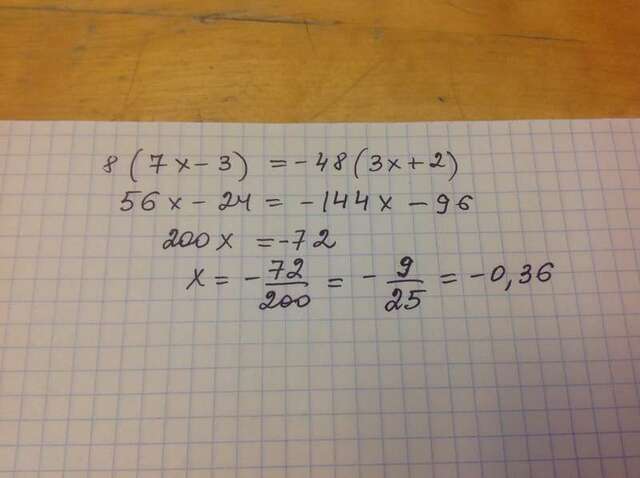 8(7x-3) = -48(3x+2)
56x - 24 = -144x - 96
200x = -72
x = -72/200 = -9/25 = -0,36